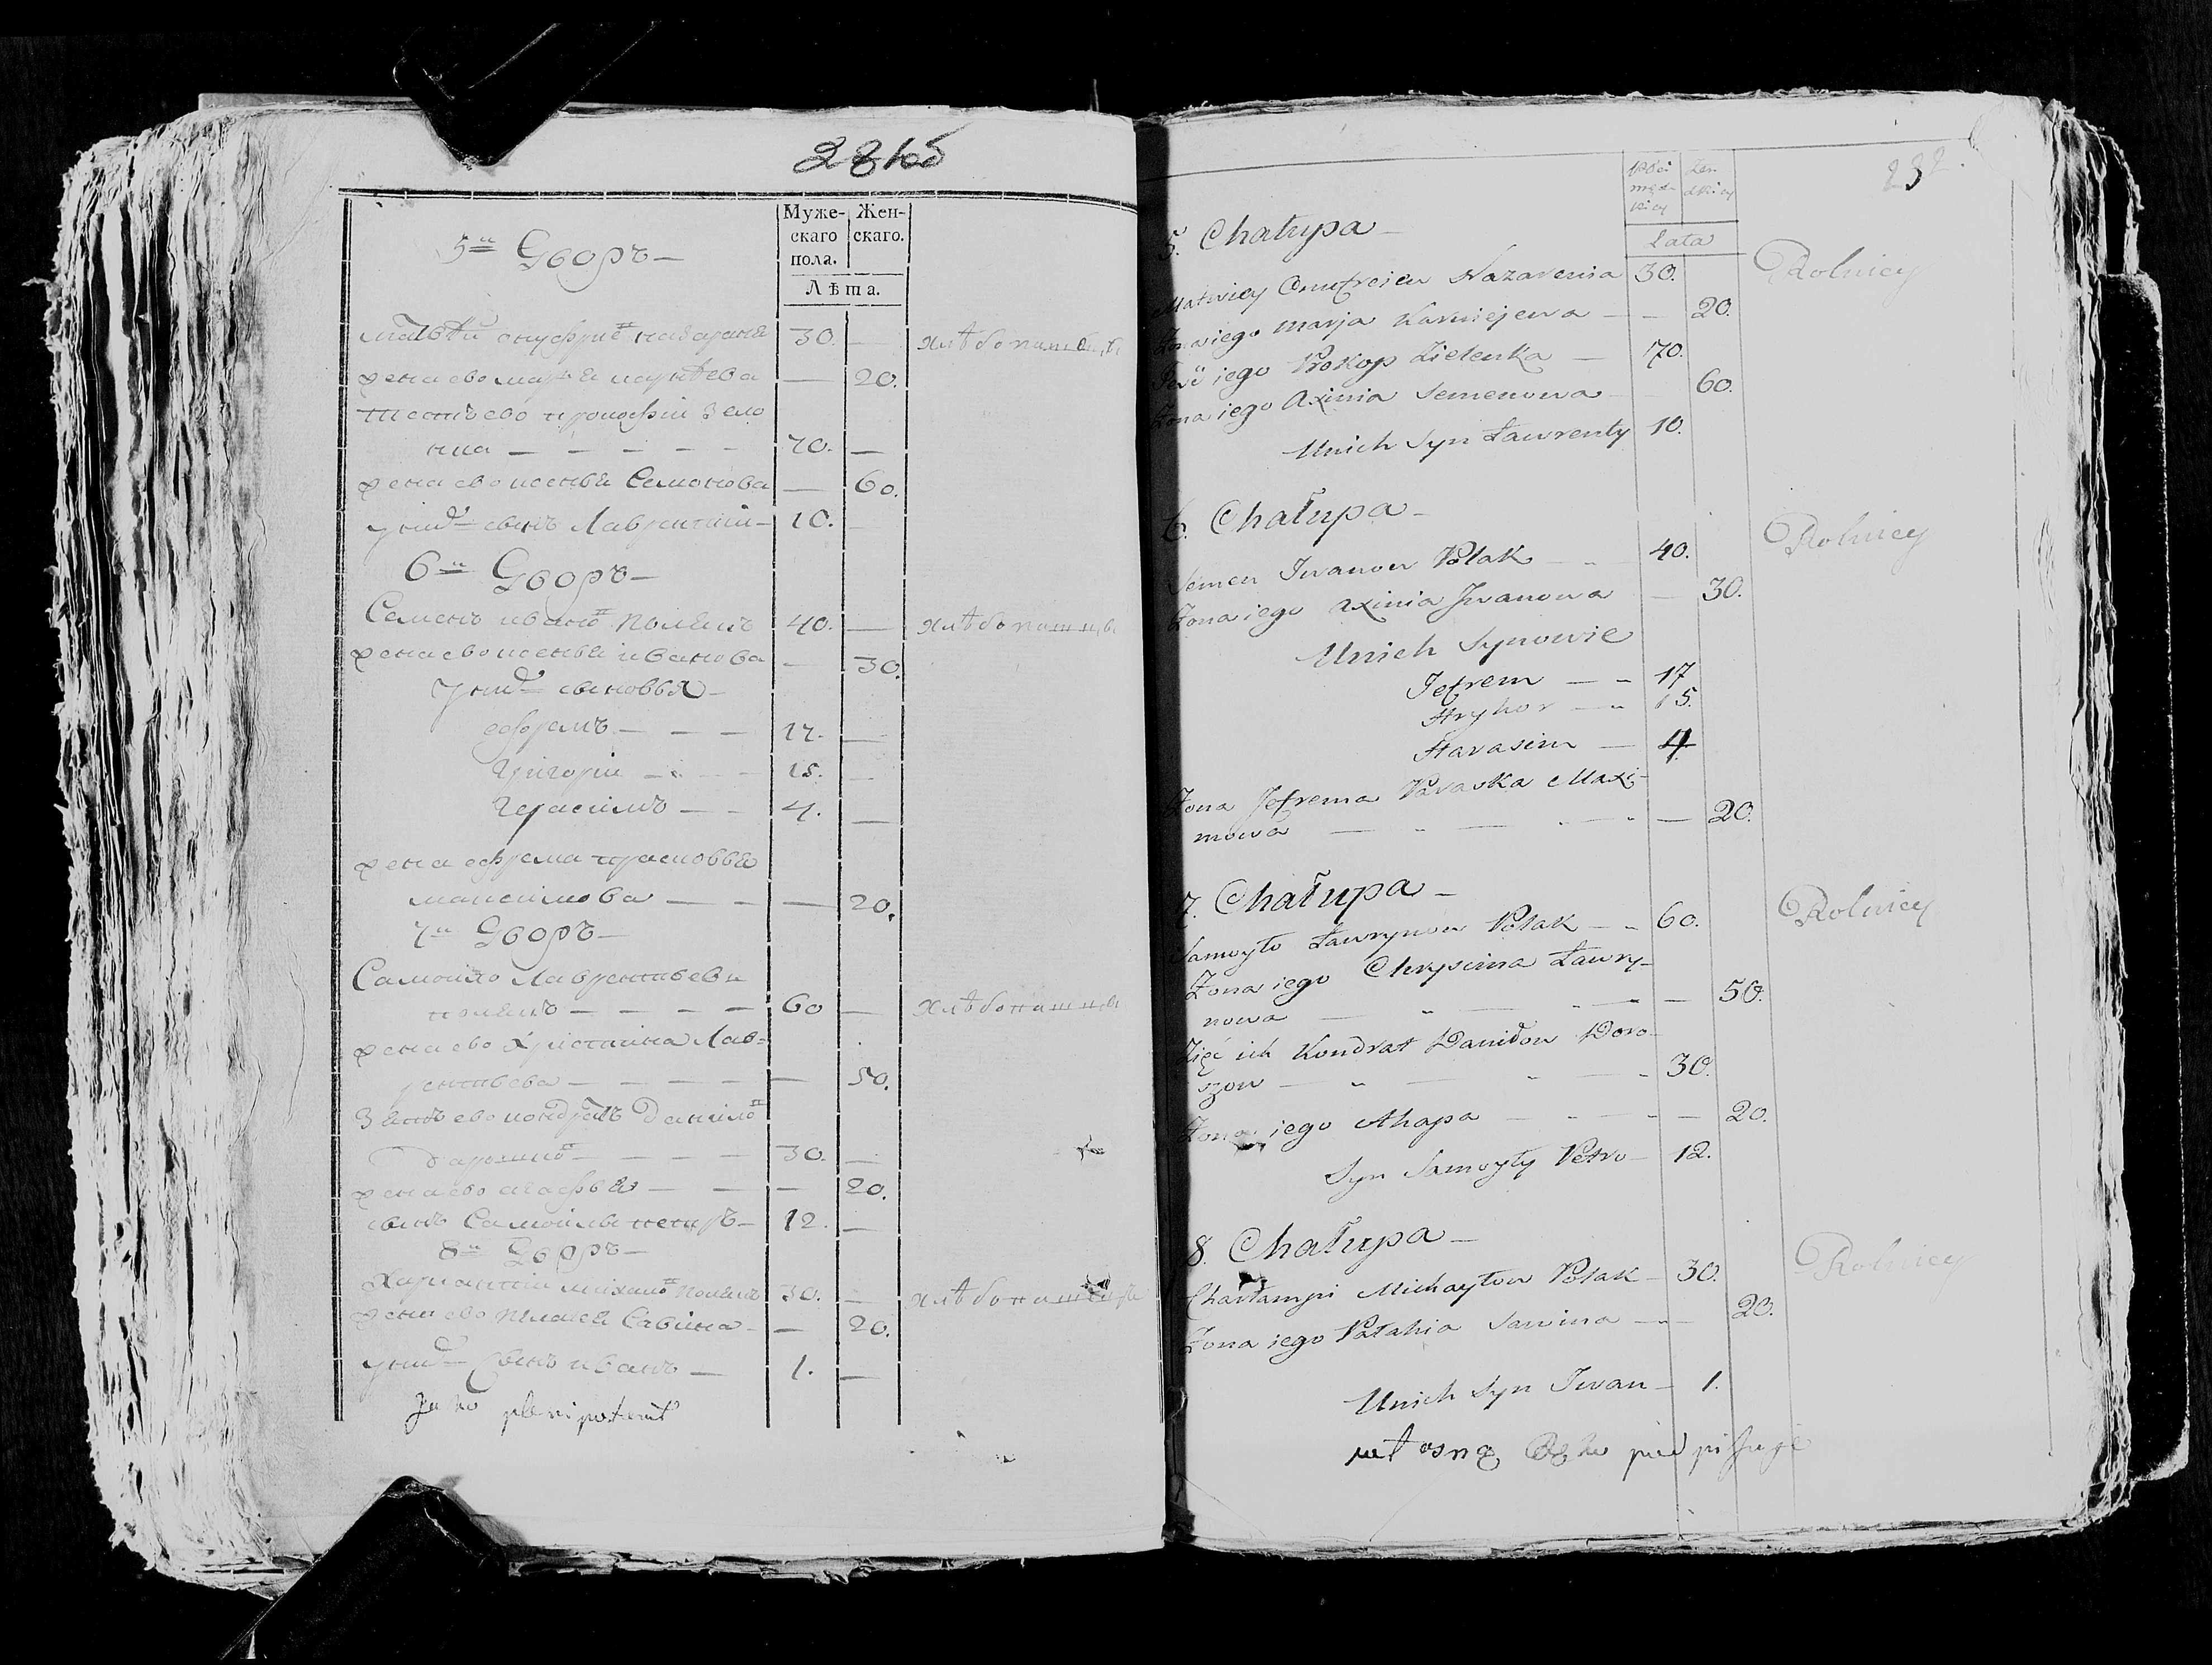 281об
Муже- Жен-
скаго скаго.
пола.
Лѣта.
5й Дворъ —
Матвѣй онуфрие назараня 30. — хлѣбопашецъ
жена ево марья карнѣева — 20.
тесть ево прокофій Зело
нка — — — — — 70. —
жена ево ксенья Семонова — 60.
у них сынъ Лаврентий — 10. —
6й Дворъ —
Семенъ ивано полякъ 40. — хлѣбопашцы
жена ево ксенья иванова — 30.
У них сыновья —
ефремъ — — — 17. —
григорий — — — 15. —
герасимъ — — 4. —
жена ефрема прасковья
максимова — — — 20.
7й Дворъ —
Самойло Лаврентьевъ
полякъ — — — — 60 — хлѣбопашцы
жена ево Христина Лав=
рентьева — — — — — 50.
Зять ево кондратъ данило
— — — — 30. —
жена ево агафья — — — 20.
сынъ Самойлы петръ — 12. —
8й Дворъ —
Харлантий михайло полякъ 30. —
жена ево Савина — — 20.
у них Сынъ иванъ — 1. —
Jako plenipotent
232.
Płci męz- kiey Żen- skiey
Lata
5. Chałupa —
Matwiey Onufreiew Nazarenia 30. Rolnicy
Żona iego Marja Karniejewa — — 20.
Teść iego Prokop Zielenka — 70.
Żona iego Axinia Semenowa — 60.
Unich Syn Ławrenty 10.
6. Chałupa —
Semen Iwanow Polak — 40. Rolnicy
Żona iego Axinia Iwanowa — 30.
Unich Synowie
Jefrem — — 17
Hryhor — — 15.
Harasim — 4
Żona Jefrema Paraska Maxi-
mowa — — — — — 20.
7. Chałupa —
Samoyło Ławrynow Polak — 60. Rolnicy
Żona iego Chryscina Ławry-
nowa — — — — — 50.
Zięć ich Kondrat Daniłow Doro-
szow — — — — 30.
Żona iego Ahapa — — — — 20.
Syn Samoyły Petro — 12.
8. Chałupa —
Charłampi Michayłow Polak — 30. Rolnicy
Żona iego Pałahia Sawina — — 20.
Unich Syn Iwan — 1.
własną Ręką podpisuję